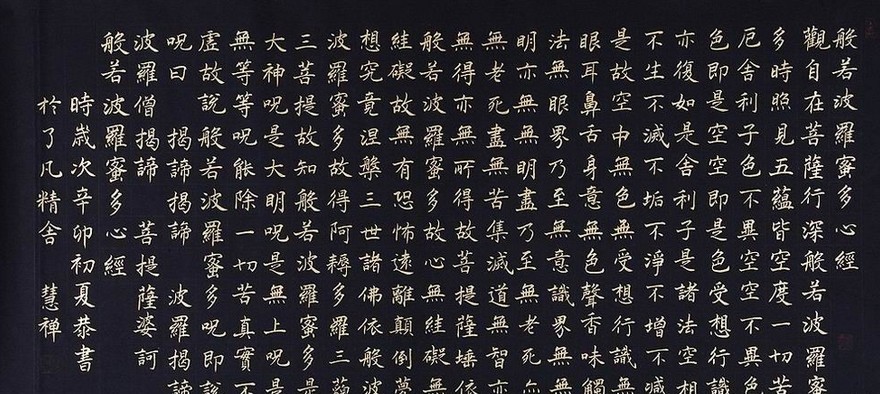 般若波羅蜜多心經
觀自在菩薩行深般若波羅蜜
多時照見五蘊皆空度一切苦
厄舍利子色不異空空不異色
色即是空空即是色受想行識
亦復如是舍利子是諸法空相
不生不滅不垢不淨不增不減
是故空中無色無受想行識無
眼耳鼻舌身意無色聲香味觸
法無眼界乃至無意識界無無
明亦無無明盡乃至無老死亦
無老死盡無苦集滅道無智亦
無得亦無所得故菩提薩埵依
般若波羅蜜多故心無絓礙無
絓礙故無有恐怖遠離顛倒夢
想究竟涅槃三世諸佛依般波
波羅蜜多故得阿耨多羅三藐
三菩提故知般若波羅蜜多是
大神呪是大明呪是無上呪是
無等等呪能除一切苦真實不
虛故說般若波羅蜜多呪即說
呪曰 揭諦揭諦 波羅揭諦
波羅僧揭諦 菩提薩婆訶
般若波羅蜜多心經
時歲次辛卯初夏恭書
於了凡精舍 慧禅